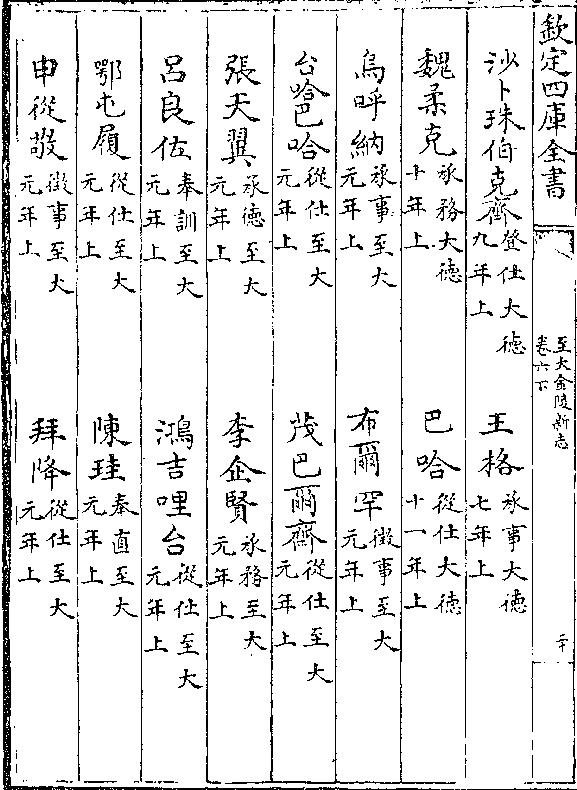 欽定四庫全書
至大金陵新志
卷六下
二十
沙卜珠伯克齊 登仕大德九年上 王格 承事大德七年上
魏柔克 承務大德十年上 巴哈 從仕大德十一年上
烏呼納 承事至大元年上 布爾罕 徵事至大元年上
台哈巴哈 從仕至大元年上 茂巴爾齊 從仕至大元年上
張天翼 承德至大元年上 李企賢 承務至大元年上
呂良佐 奉訓至大元年上 鴻吉哩台 從仕至大元年上
鄂屯履 從仕至大元年上 陳珪 奉直至大元年上
申從敬 徵事至大元年上 拜降 從仕至大元年上